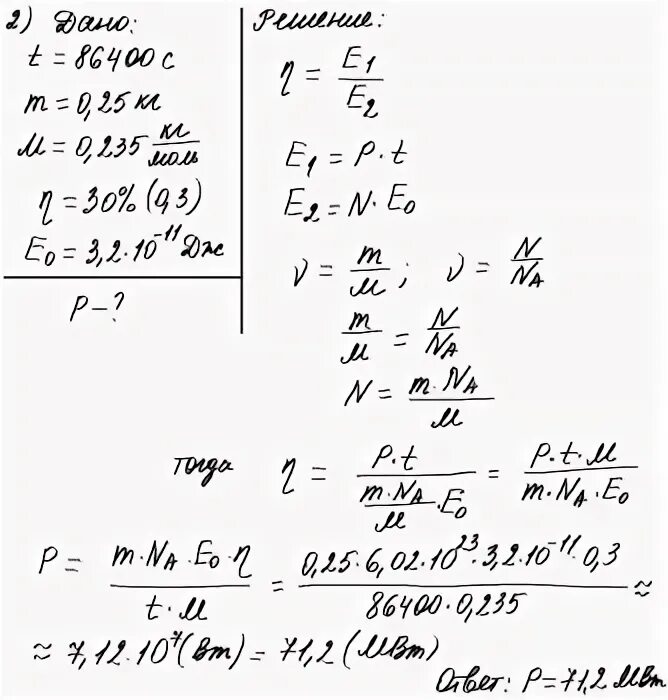 2) Дано:
t = 86400 с
m = 0,25 кг
M = 0,235 кг/моль
η = 30% (0,3)
E₀ = 3,2·10⁻¹¹ Дж
P – ?
Решение:
η = E₁/E₂
E₁ = P·t
E₂ = N·E₀
ν = m/M ; ν = N/Nₐ
m/M = N/Nₐ
N = m·Nₐ/M
тогда η = P·t/(m·Nₐ/M·E₀) = P·t·M/(m·Nₐ·E₀)
P = m·Nₐ·E₀·η/(t·M) = 0,25·6,02·10²³·3,2·10⁻¹¹·0,3/(86400·0,235) ≈
≈ 7,12·10⁷(Вт) = 71,2 (МВт)
Ответ: P = 71,2 МВт